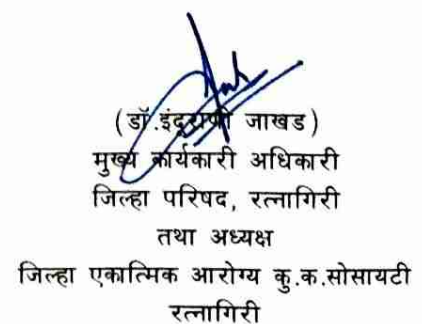 (डॉ.इंदूराणी जाखड)
मुख्य कार्यकारी अधिकारी
जिल्हा परिषद, रत्नागिरी
तथा अध्यक्ष
जिल्हा एकात्मिक आरोग्य कु.क.सोसायटी
रत्नागिरी